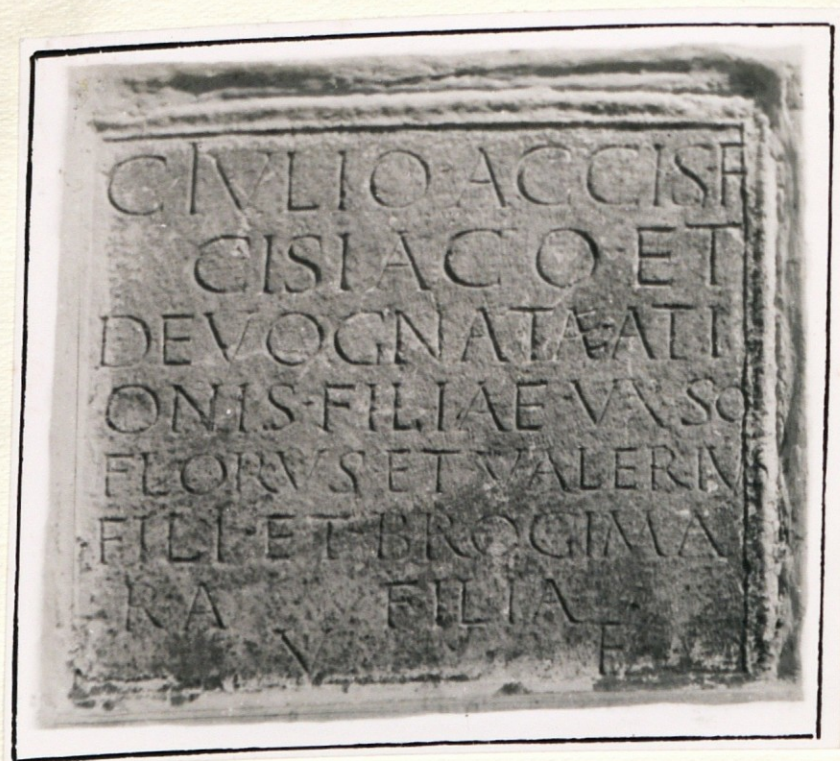 C IVLIO ACCISF
CISIACO·ET
DEVOGNATAE·ATI
ONIS·FILIAE·VXSO
FLORVS ET VALERIV
FILI·ET·BROGIMA
RA FILIA
V F